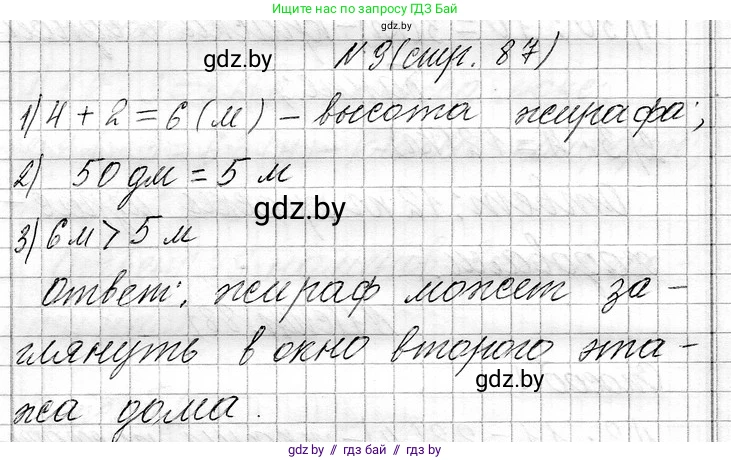 Ищите нас по запросу ГДЗ Бай
gdz.by
gdz.by
№ 9 (стр. 87)
1) 4 + 2 = 6 (м) – высота жирафа;
2) 50 дм = 5 м
gdz.by
3) 6 м > 5 м
Ответ: жираф может за-
глянуть в окно второго эта-
gdz.by
жа дома.
gdz.by // гдз бай // gdz.by